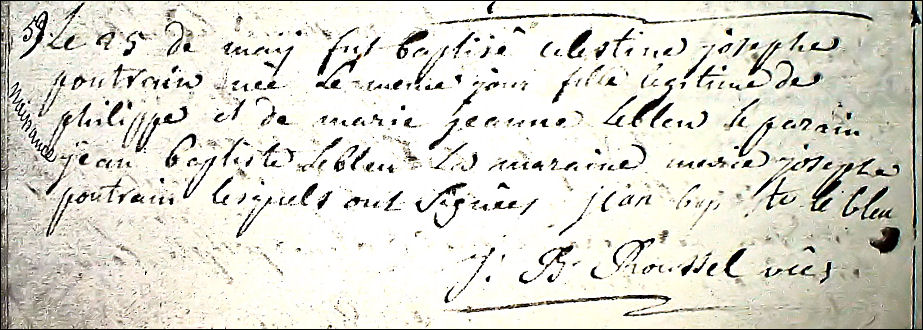 59 Le 25 de maÿ fut baptisé celestine josephe
poutrain née le meme jour fille legitime de
naissance
philippe et de marie jeanne lebleu le parain
jean baptiste lebleu la maraine marie josephe
poutrain lesquels ont signées jean bap te le bleu
J: B: Roussel